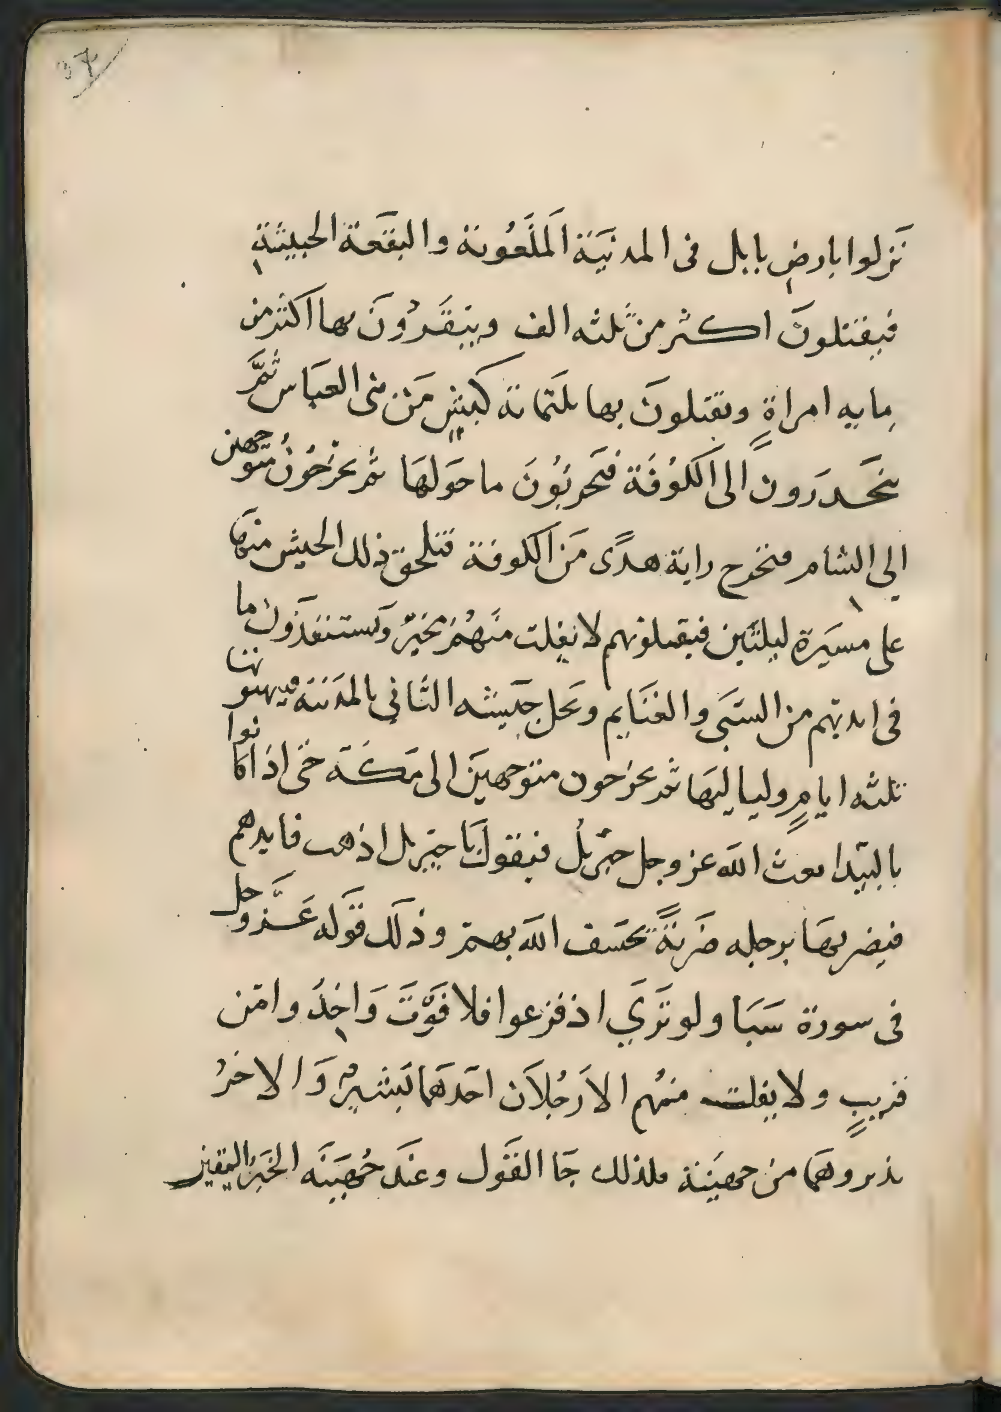 37
نَزلوا بارضِ بابل فى المدنيَنة المَلَعُونة والبقَعة الخبيثة
فيقتلونَ اكثر من ثلثه الف ويبَقَرُونَ بها اكثر من
مايه امراةٍ ويقتلونَ بها ثلثمائة كبشٍ مَن بنى العبَاس ثمَّ
ينحَدرَون الى الكوُفَة فيَخربُونَ ما حَولهَا ثم يخرجُونُ متوجهين
الي الشام فتخرج راية هدًى مَن الكوفة فتلحق ذلك الجيش منهَا
على مسيَرة ليلتَين فيقتلونهم لا يفلت منَهُم مخبرٌ وَيستنقذَون ما
فى ايديهم من السَبَى والغنَايم ويَحل جَيشه الثانى بالمدَينة فينهبونها
ثلثه ايامٍ ولياليهَا ثم يخرجون متوجهينَ الى مَكَة حَتى اذا كانوا
بالبَيدا بعث الله عز وجل جبَريلُ فيَقول يَا جبَريل اذهب فابدهم
فيضربهَا برجله ضَربَةً يخسَف اللَه بهم وذلَك قوَله عَزَّ وجل
فى سورة سَبَا ولو تَرَي اذ فزعوا فلا فَوْتَ وَاخِذُ وامن
قريبٍ ولا يفلت منهُم الا رَجُلاَن احَدهَما بَشيرٌ وَالاخرُ
نذير وهَما من جهيَنة فلذلك جَا القَول وعنَد جُهيَنَه الخبَرُ اليقين